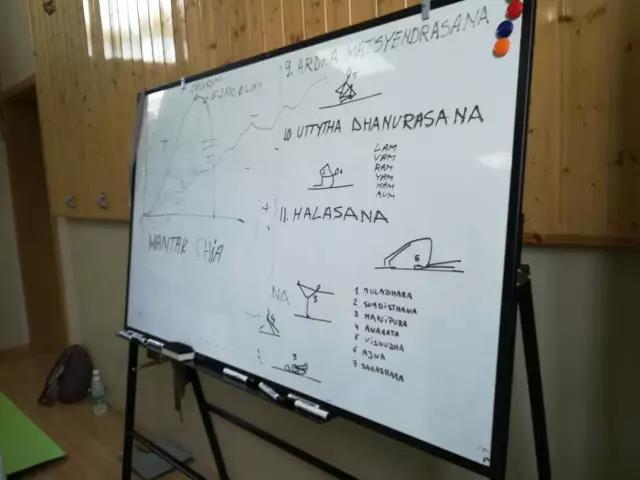 9. ARDHA MATSYENDRASANA
10. UTTYTHA DHANURASANA
LAM
VAM
RAM
YAM
HAM
AUM
11. HALASANA
WANTAK CHIA
NA
5
6
3
3
1 MULADHARA
2 SVADISTHANA
3 MANIPURA
4 ANAHATA
5 VISHUDHA
6 AJNA
7 SAHASRARA